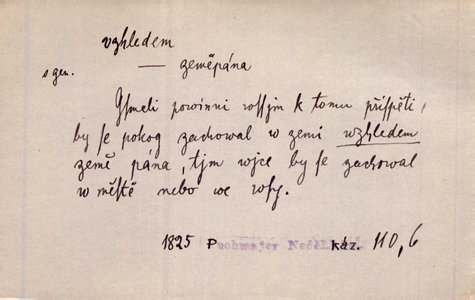 vzhledem
s gen.
— zeměpána
Gsmeli powinni wssjm k tomu přispěti,
by se pokog zachowal w zemi wzhledem
země pána, tjm wjce by se zachowal
w městě nebo we wsy.
1825 Puchmajer Neděl. káz. 110,6